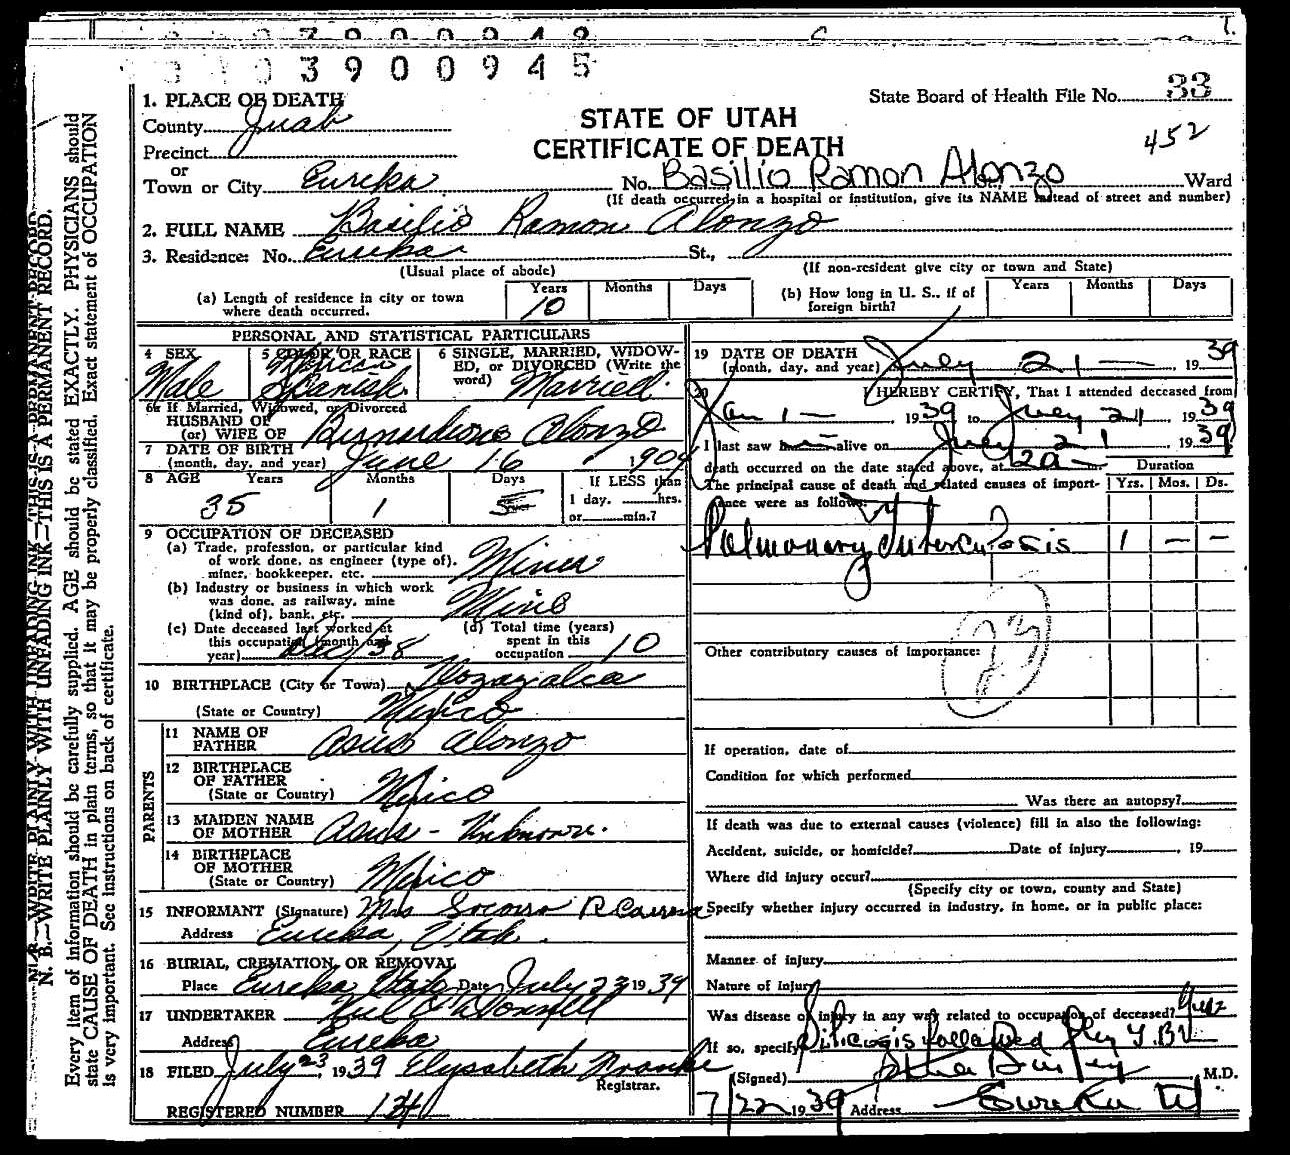 3900945
1. PLACE OF DEATH
State Board of Health File No. 33
County Juab
STATE OF UTAH
452
Precinct
CERTIFICATE OF DEATH
or
Town or City Eureka No. Basilio Ramon Alonzo Ward
(If death occurred in a hospital or institution, give its NAME instead of street and number)
2. FULL NAME Basilio Ramon Alonzo
3. Residence: No. Eureka St.,
(Usual place of abode) (If non-resident give city or town and State)
(a) Length of residence in city or town where death occurred. Years 10 Months Days
(b) How long in U. S., if of foreign birth? Years Months Days
PERSONAL AND STATISTICAL PARTICULARS
4 SEX Male
5 COLOR OR RACE Mexican Spanish
6 SINGLE, MARRIED, WIDOWED, or DIVORCED (Write the word) Married.
6a If Married, Widowed, or Divorced
HUSBAND OF
(or) WIFE OF Alonzo
7 DATE OF BIRTH
(month, day, and year) June 16 1904
8 AGE Years 35 Months 1 Days 5 If LESS than 1 day. hrs. or min.?
9 OCCUPATION OF DECEASED
(a) Trade, profession, or particular kind of work done, as engineer (type of). miner, bookkeeper, etc. Miner
(b) Industry or business in which work was done, as railway, mine (kind of), bank, etc. Mine
(c) Date deceased last worked at this occupation (month and year) /38
(d) Total time (years) spent in this occupation 10
10 BIRTHPLACE (City or Town)
(State or Country) Mexico
PARENTS
11 NAME OF FATHER Alonzo
12 BIRTHPLACE OF FATHER
(State or Country) Mexico
13 MAIDEN NAME OF MOTHER - Unknown.
14 BIRTHPLACE OF MOTHER
(State or Country) Mexico
15 INFORMANT (Signature) Mrs Socorro R
Address Eureka, Utah.
16 BURIAL, CREMATION, OR REMOVAL
Place Eureka Utah Date July 23 1939
17 UNDERTAKER
Address Eureka
18 FILED July 23, 1939 Elysabeth
Registrar.
REGISTERED NUMBER
19 DATE OF DEATH
(month, day, and year) July 21 — 1939
20 I HEREBY CERTIFY, That I attended deceased from
Jan 1 — 1939 to July 21, 1939
I last saw him alive on July 21 1939
death occurred on the date stated above, at 12a —
Duration
The principal cause of death and related causes of importance were as follows:
Yrs. Mos. Ds.
Pulmonary Tuberculosis 1 — —
23
Other contributory causes of importance:
If operation, date of
Condition for which performed
Was there an autopsy?
If death was due to external causes (violence) fill in also the following:
Accident, suicide, or homicide? Date of injury , 19
Where did injury occur?
(Specify city or town, county and State)
Specify whether injury occurred in industry, in home, or in public place:
Manner of injury
Nature of injury
Was disease or injury in any way related to occupation of deceased? Yes
If so, specify Silicosis followed by T.B.
(Signed) M.D.
7/22 1939 Address Eureka Ut
N. B.—WRITE PLAINLY WITH UNFADING INK—THIS IS A PERMANENT RECORD.
Every item of information should be carefully supplied. AGE should be stated EXACTLY. PHYSICIANS should
state CAUSE OF DEATH in plain terms, so that it may be properly classified. Exact statement of OCCUPATION
is very important. See instructions on back of certificate.